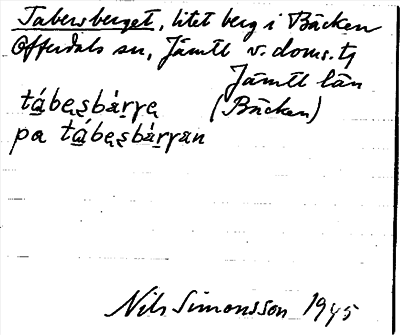 Tabersberget, litet berg i Bäcken
Offerdals sn, Jämtl v. doms. tj
Jämtl län
tábe̜sbàrγe̜ (Bäcken)
pa tábe̜sbárγan
Nils Simonsson 1945